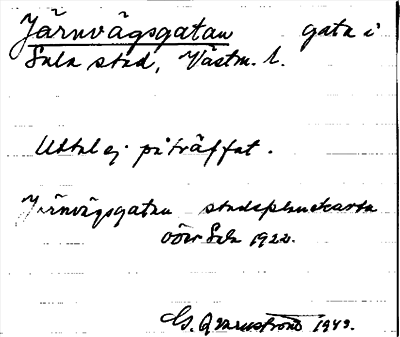 Järnvägsgatan gata i
Sala stad, Västm. l.
Uttal ej påträffat.
Järnvägsgatan stadsplanekarta
över Sala 1922.
1943.